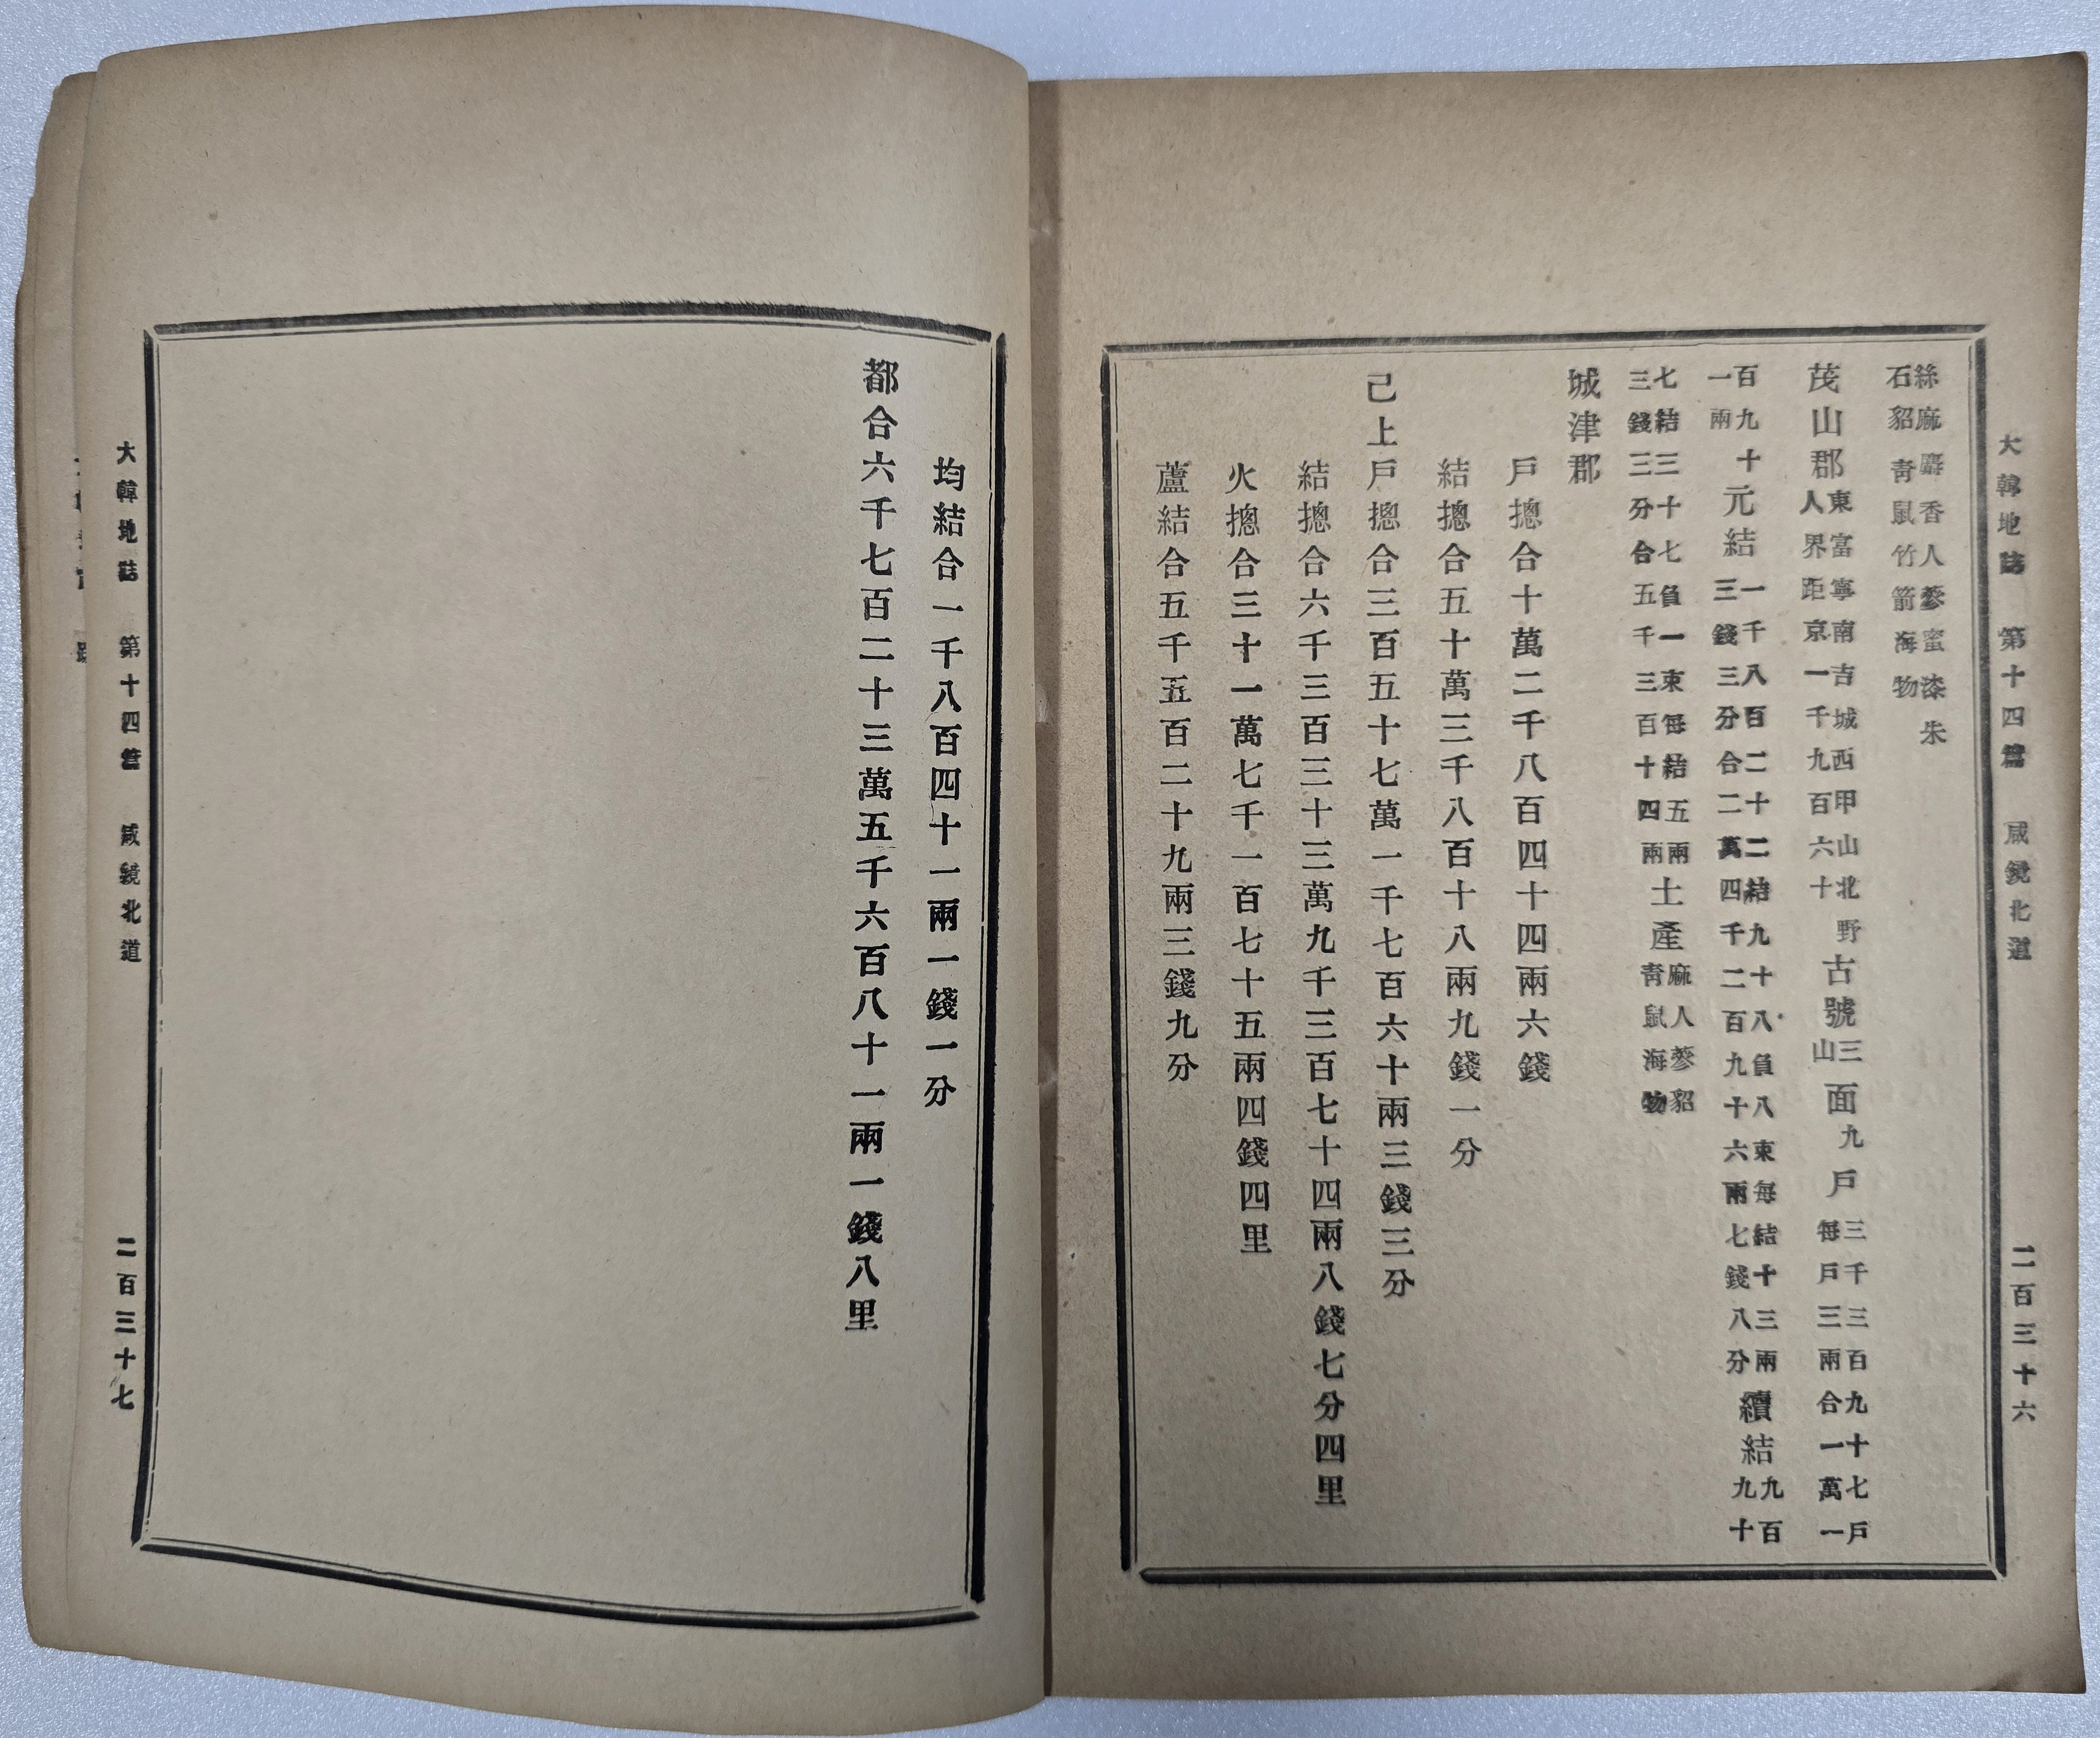 大韓地誌 第十四篇 咸鏡北道 二百三十六
絲麻麝香人蔘蜜漆朱
石貂靑鼠竹箭海物
茂山郡
東富寧南吉城西甲山北野
人界距京一千九百六十
古號
三
山
面
九
戶
三千三百九十七戶
每戶三兩合一萬一
百九十
一兩
元結
一千八百二十二結九十八負八束每結十三兩
三錢三分合二萬四千二百九十六兩七錢八分
續結
九百
九十
七結三十七負一束每結五兩
三錢三分合五千三百十四兩
土產
麻人蔘貂
靑鼠海物
城津郡
戶摠合十萬二千八百四十四兩六錢
結摠合五十萬三千八百十八兩九錢一分
己上戶摠合三百五十七萬一千七百六十兩三錢三分
結摠合六千三百三十三萬九千三百七十四兩八錢七分四里
火摠合三十一萬七千一百七十五兩四錢四里
蘆結合五千五百二十九兩三錢九分
均結合一千八百四十一兩一錢一分
都合六千七百二十三萬五千六百八十一兩一錢八里
大韓地誌 第十四篇 咸鏡北道 二百三十七